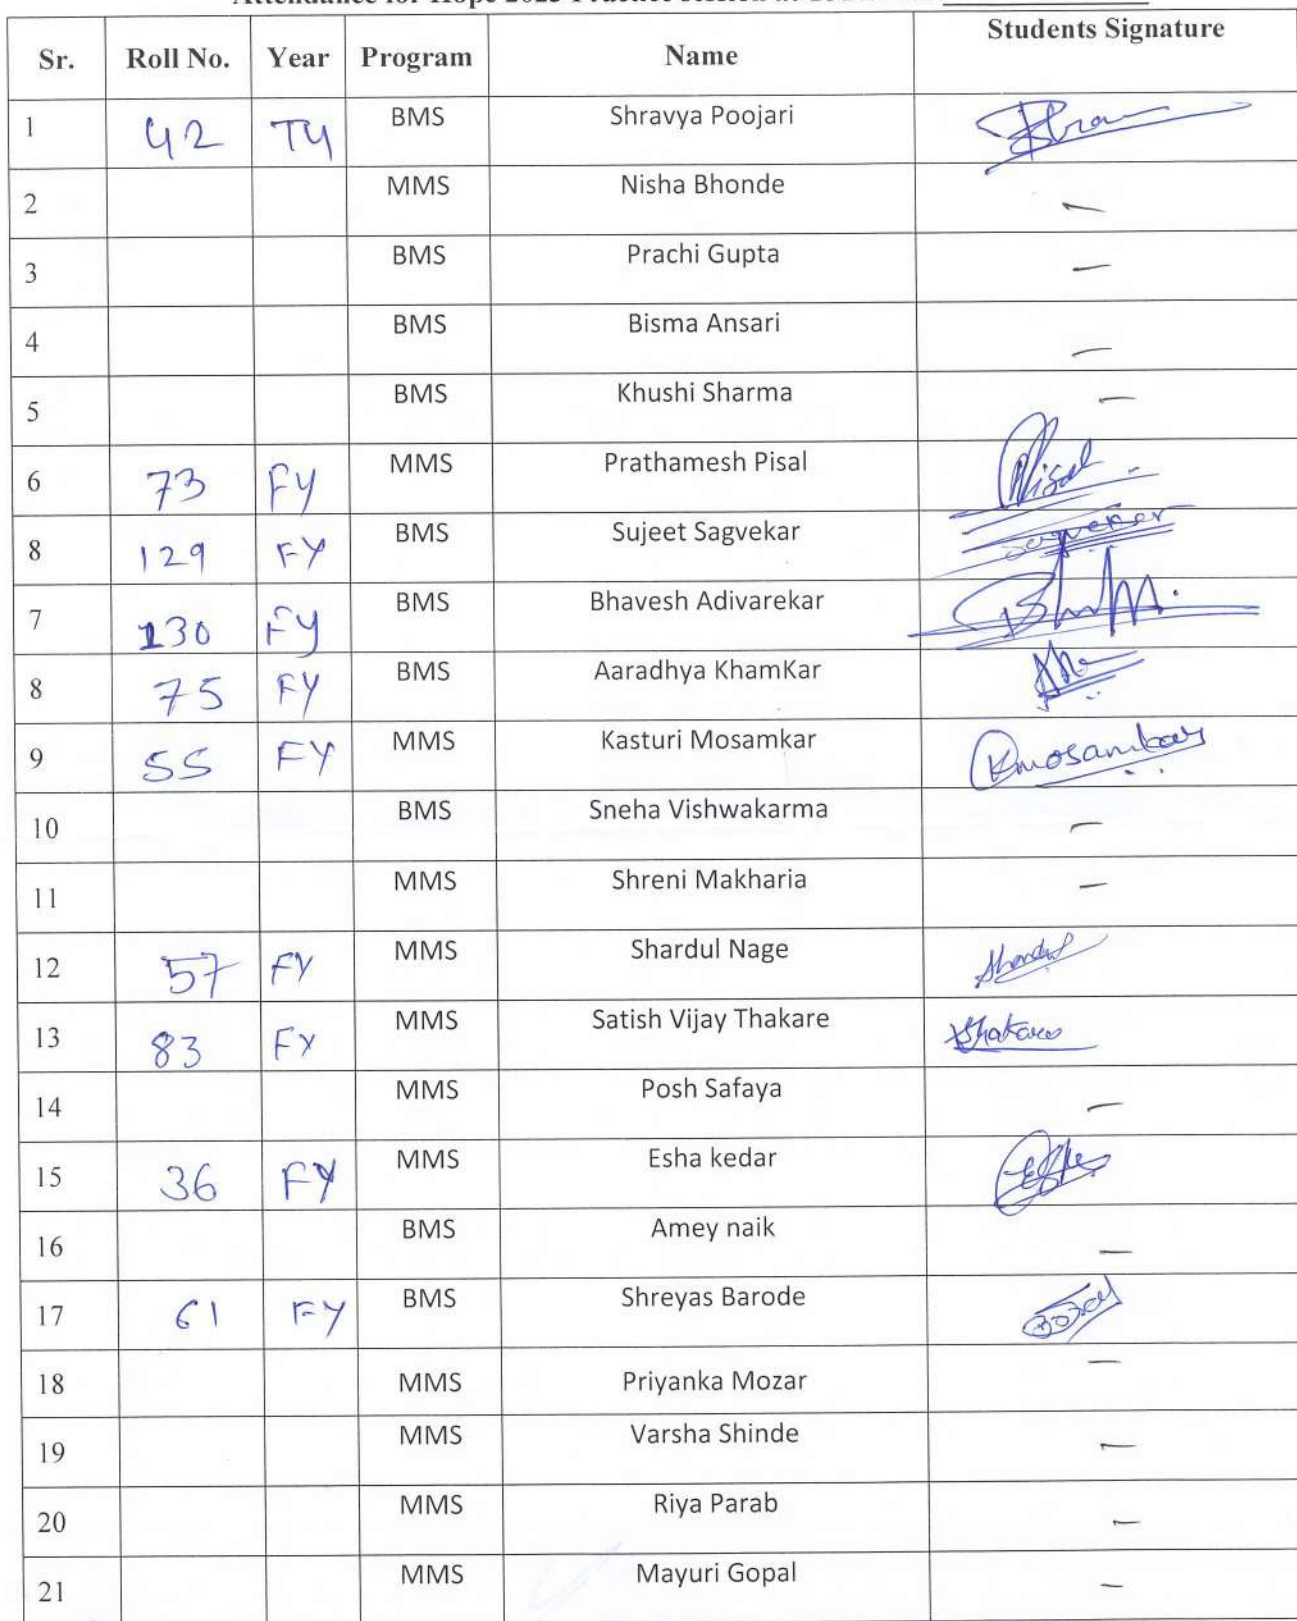 Attendance for Hope 2023 Practice session at
Sr. Roll No. Year Program Name Students Signature
1 42 TY BMS Shravya Poojari
2 MMS Nisha Bhonde —
3 BMS Prachi Gupta —
4 BMS Bisma Ansari —
5 BMS Khushi Sharma —
6 73 FY MMS Prathamesh Pisal Pisal
8 129 FY BMS Sujeet Sagvekar Sagvekar
7 130 FY BMS Bhavesh Adivarekar
8 75 FY BMS Aaradhya KhamKar
9 55 FY MMS Kasturi Mosamkar Kmosamkar
10 BMS Sneha Vishwakarma —
11 MMS Shreni Makharia —
12 57 FY MMS Shardul Nage Shardul
13 83 FY MMS Satish Vijay Thakare
14 MMS Posh Safaya —
15 36 FY MMS Esha kedar
16 BMS Amey naik —
17 61 FY BMS Shreyas Barode
18 MMS Priyanka Mozar —
19 MMS Varsha Shinde —
20 MMS Riya Parab —
21 MMS Mayuri Gopal —